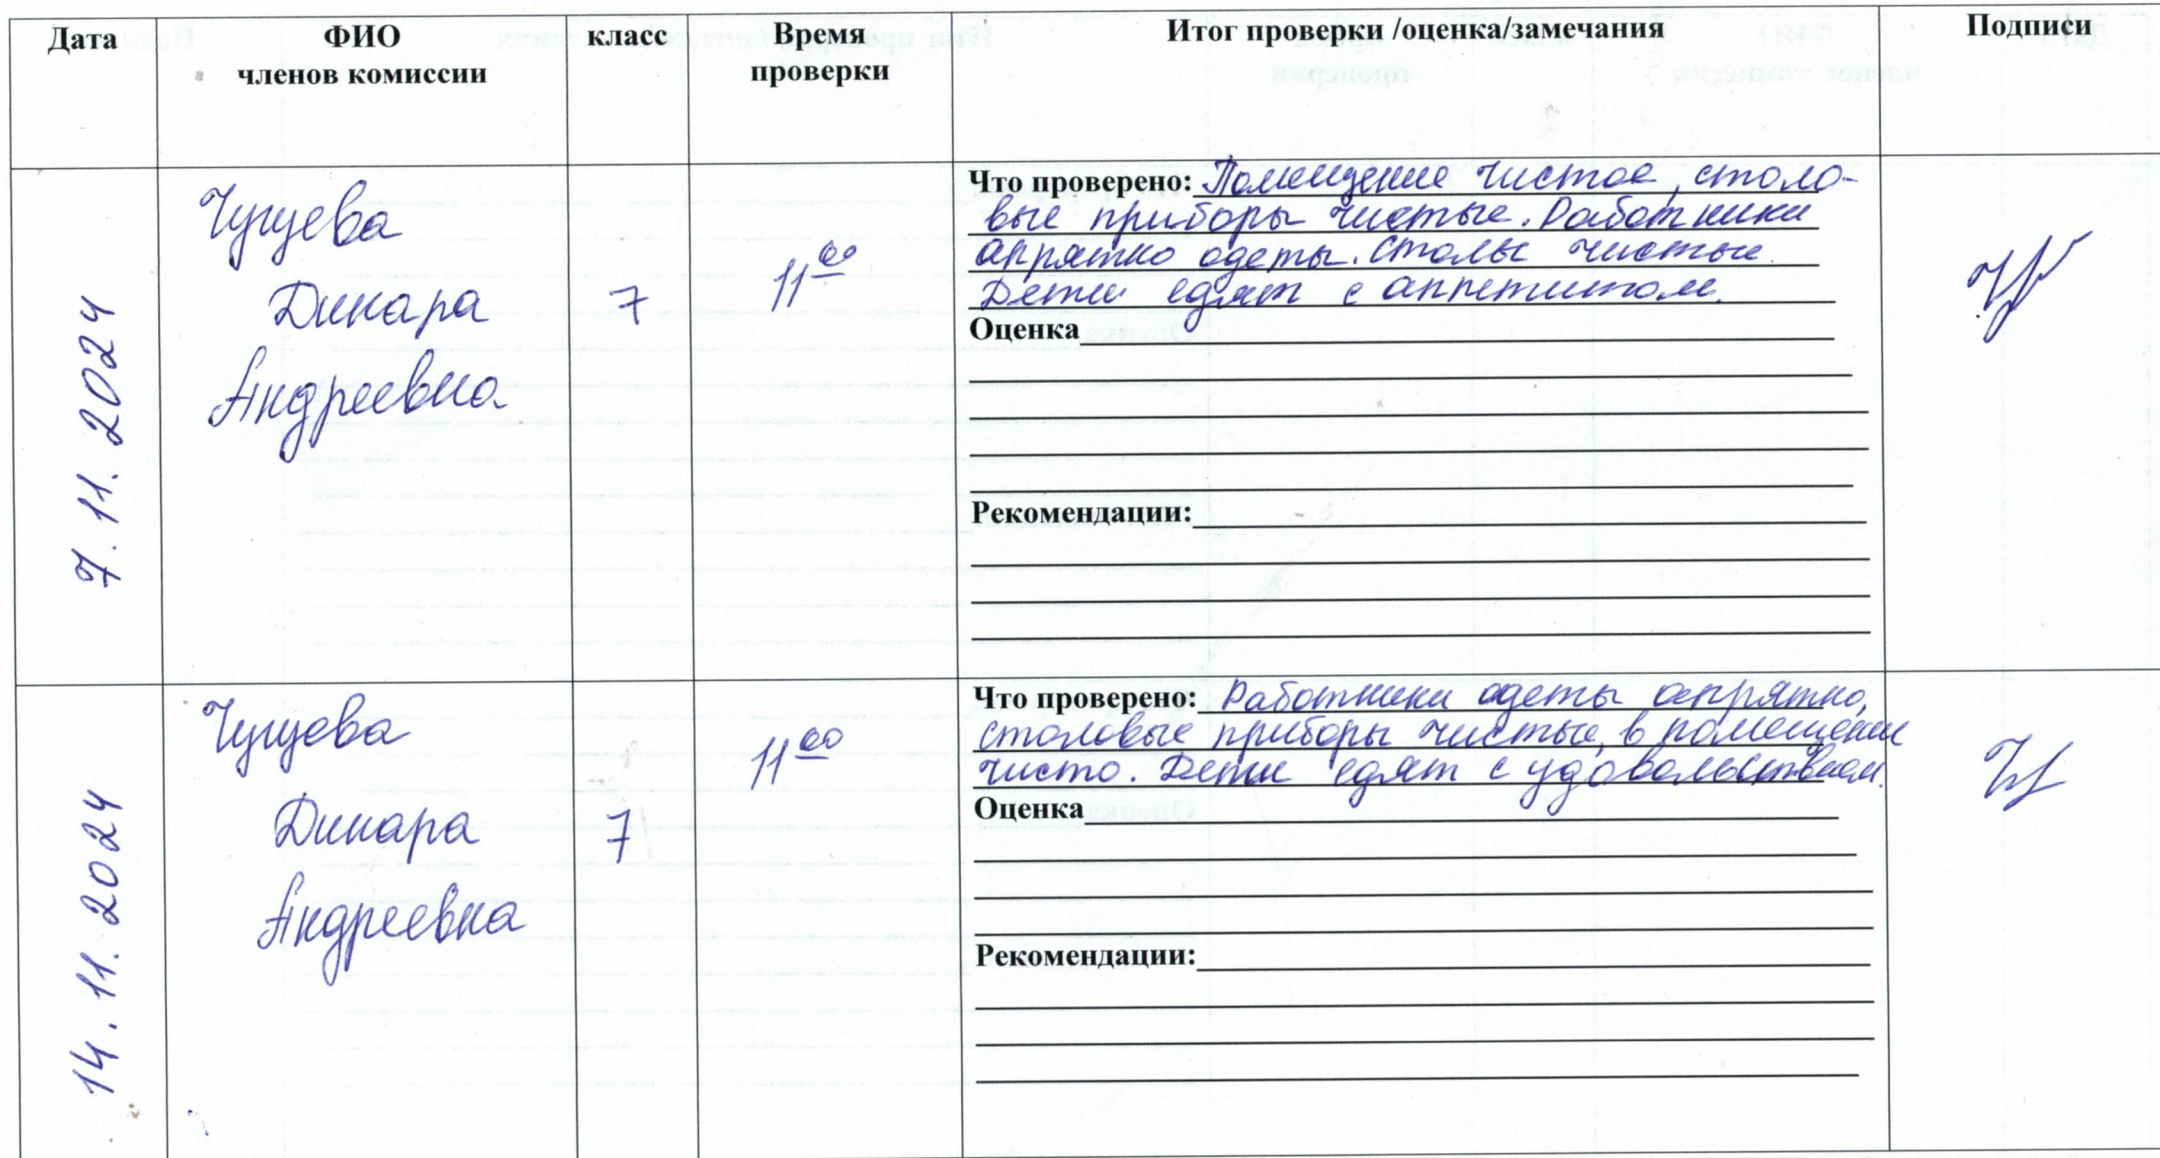 Дата
ФИО
членов комиссии
класс
Время
проверки
Итог проверки /оценка/замечания
Подписи
7.11.2024
Чугуева
Динара
Андреевна
7
11 00
Что проверено: Помещение чистое, столо-
вые приборы чистые. Работники
аррятно одеты. Столы чистые.
Дети едят с аппетитом.
Оценка
Рекомендации:
14.11.2024
Чугуева
Динара
Андреевна
7
11 00
Что проверено: Работники одеты опрятно,
столовые приборы чистые, в помещении
чисто. Дети едят с удовольствием.
Оценка
Рекомендации: